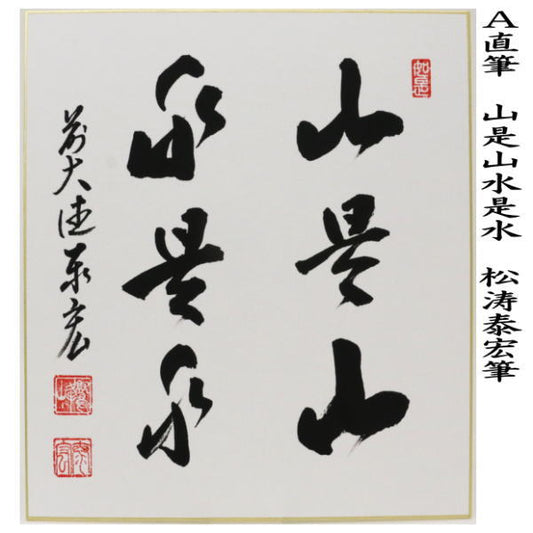 A直筆 山是山水是水 松涛泰宏筆
如是
山是山
水是水
前大徳泰宏